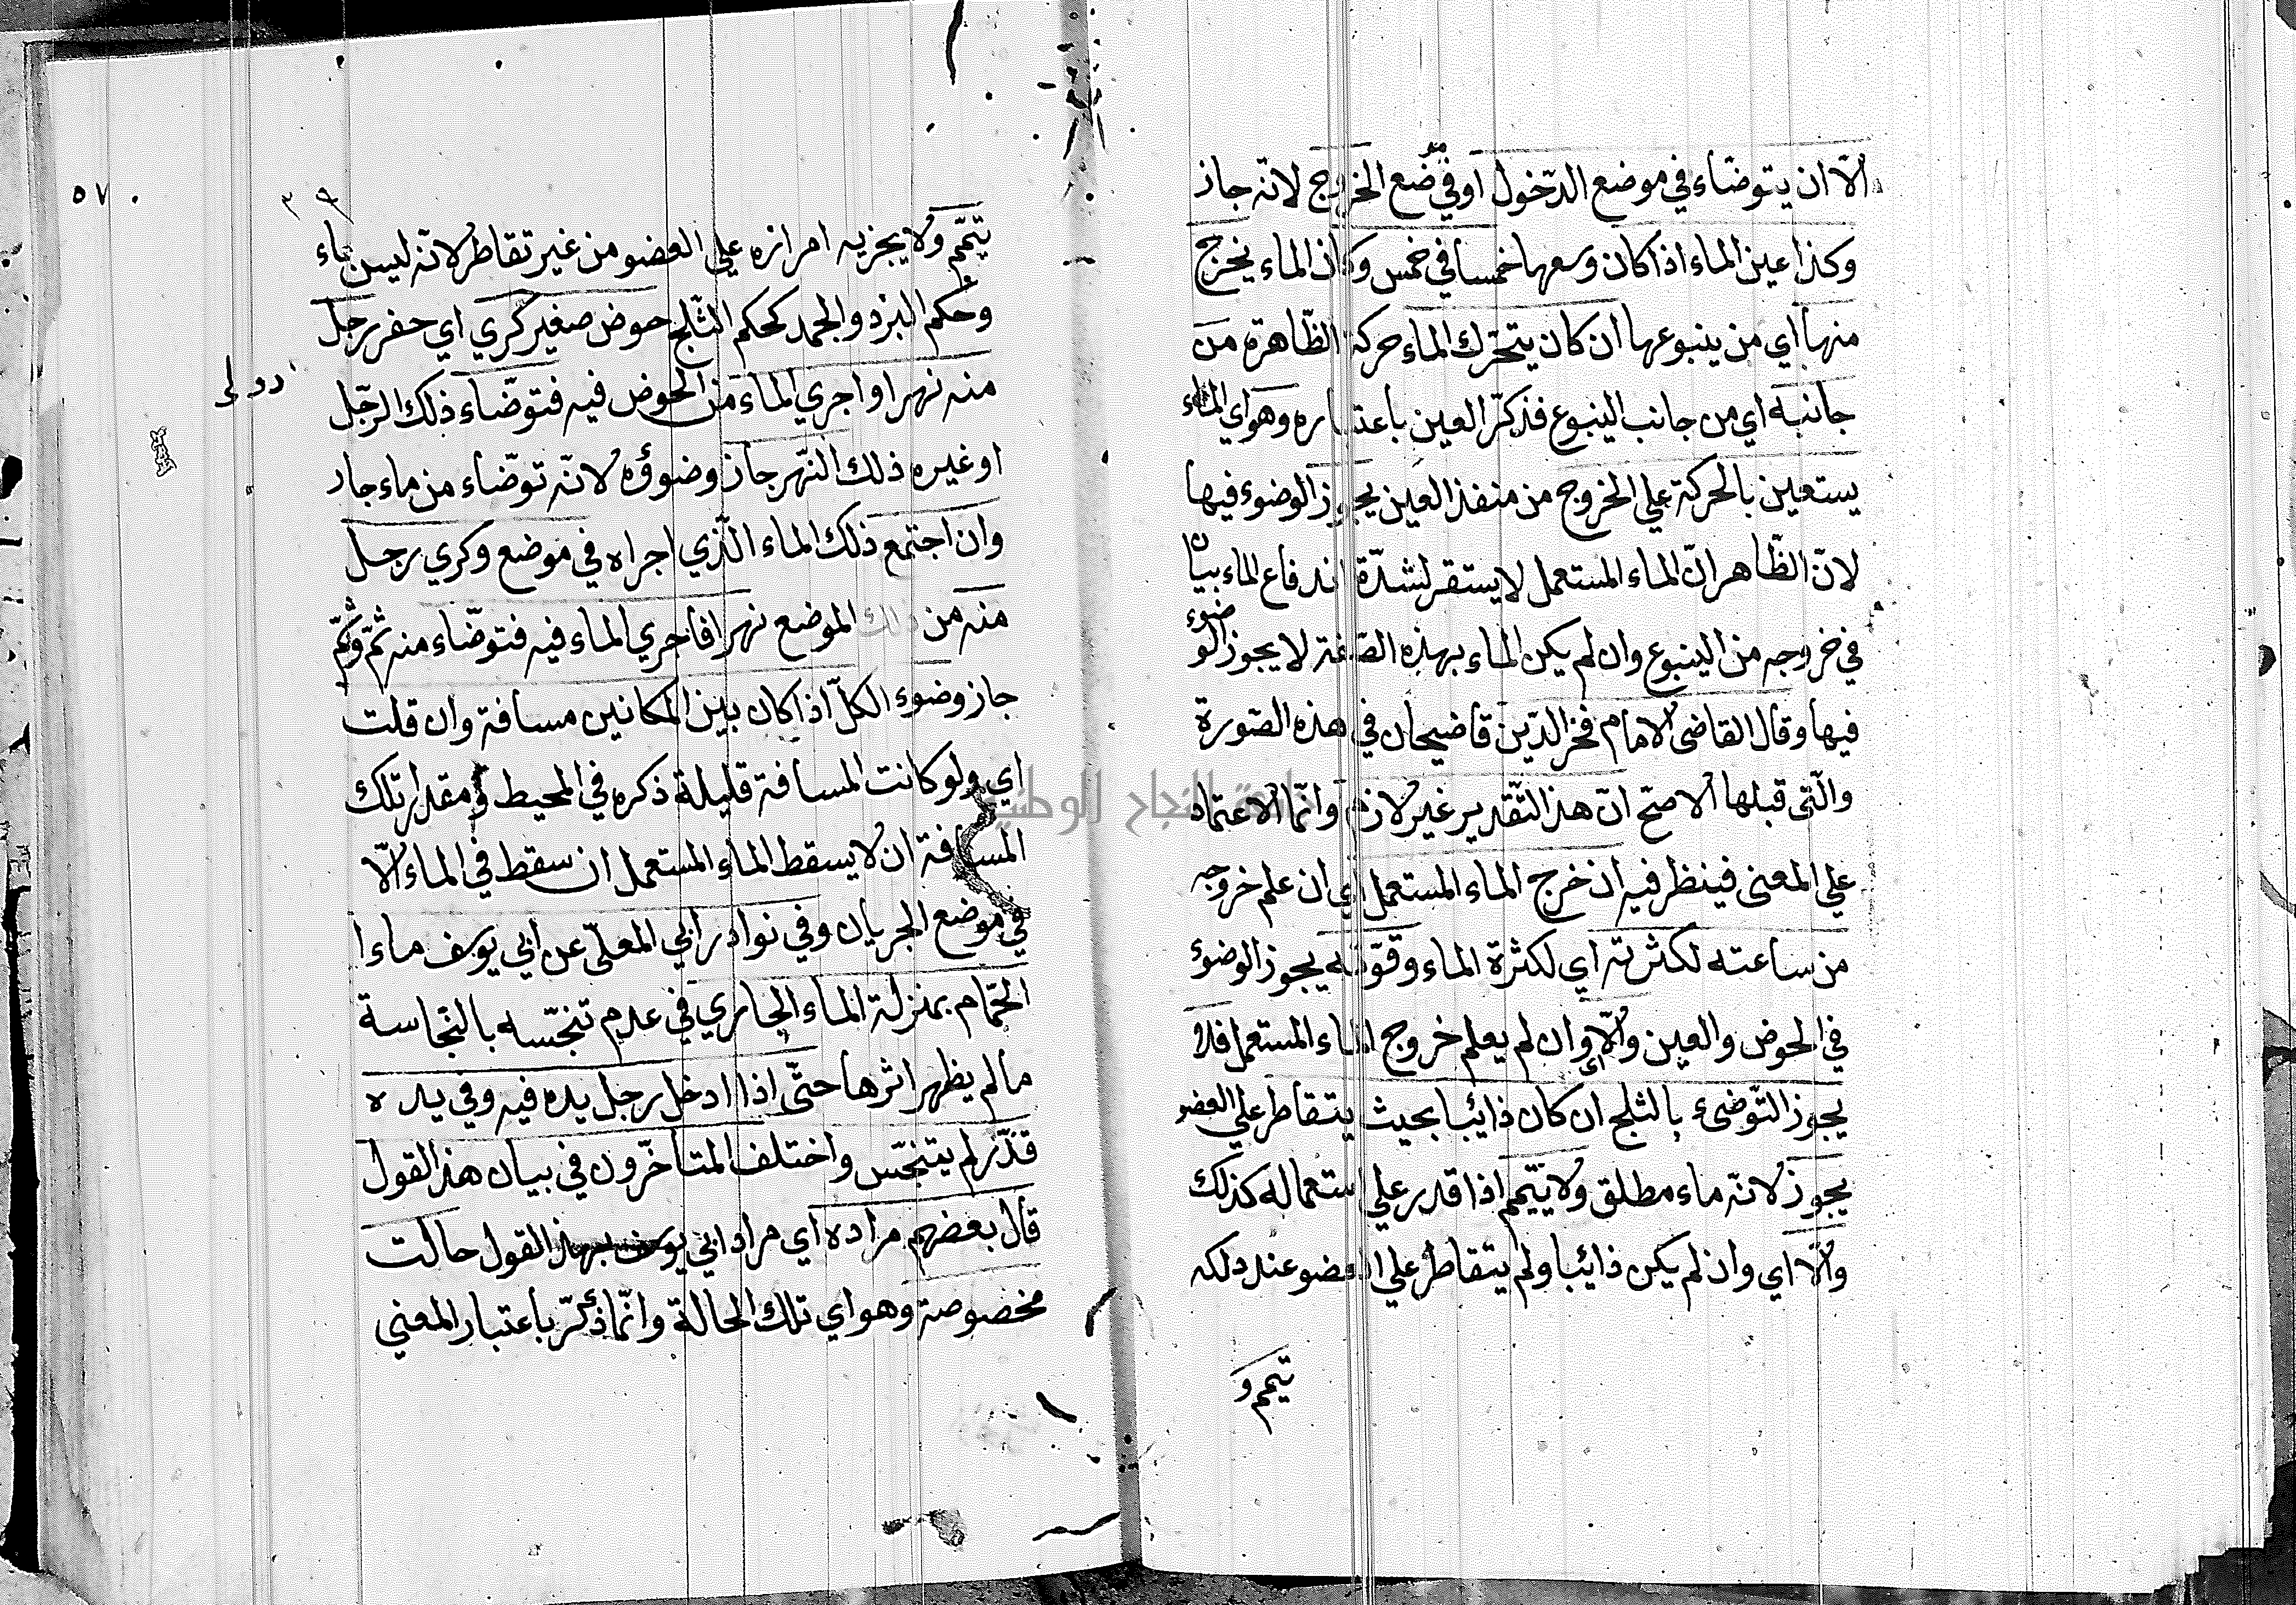 الّا ان يتوضّاء في موضع الدّخول او في موضع الخروج لانّه جاز
وكذا عين الماء اذا كان وسعها خمسا في خمس وكان الماء يخرج
منها اي من ينبوعها ان كان يتحرّك الماء حركة الظّاهرة من
جانبه اي من جانب الينبوع فذكّر العين باعتباره وهو اي الماء
يستعين بالحركة علي الخروج من منفذ العين يجوز الوضوء فيها
لانّ الظّاهر انّ الماء المستعمل لا يستقر لشدّة اندفاع الماء بيان
في خروجه من الينبوع وان لم يكن الماء بهذه الصّفة لا يجوز الوضوء
فيها وقال القاضى الامام فخر الدّين قاضيخان في هذه الصّورة
والّتى قبلها الاصحّ انّ هذ التّقدير غير لازم وانّما الاعتماد
علي المعنى فينظر فيه ان خرج الماء المستعمل اي ان علم خروجه
من ساعته لكثرته اي لكثرة الماء وقوّته يجوز الوضوء
في الحوض والعين والّا اي وان لم يعلم خروج الماء المستعمل فلا
يجوز التّوضىء بالثلج ان كان ذائبا بحيث يتقاطر علي العضو
يجوز لانّه ماء مطلق ولا يتيّمم اذا قدر علي استعماله كذلك
والّا اي وان لم يكن ذائبا ولم يتقاطر علي العضو عند دلكه
تيمم و
٥٧
٣٩
يتيّمم ولا يجزيه امرازه علي العضو من غير تقاطر لانّه ليس بماء
وحُكم البرد والجمد كحكم الثّلج حوض صغير كري اي حفر رجل
منه نهرا واجري الماء من الحوض فيه فتوضّاء ذلك الرجّل
او غيره ذلك النّهر جاز وضوؤه لانّه توضّاء من ماء جار
وان اجتمع ذلك الماء الّذي اجراه في موضع وكري رجل
منه من ذلك الموضع نهرا فاجري الماء فيه فتوضّاء منه ثمّ وثمّ
جاز وضوء الكلّ اذا كان بين المكانين مسافة وان قلت
اي ولو كانت المسافة قليلة ذكره في المحيط و مقدار تلك
المسافة ان لا يسقط الماء المستعمل ان سقط في الماء الّا
في موضع الجريان وفي نوادر ابي المعلّى عن ابي يوسف ماء ا
الحمّام بمنزلة الماء الجاري في عدم تنجّسه بالنّجاسة
ما لم يظهر اثرها حتّى اذا ادخل رجل يده فيه وفي يده
قذّر لم يتنجّس واختلف المتأخّرون في بيان هذ القول
قال بعضهم مراده اي مراد ابي يوسف بهذ القول حالت
مخصوصة وهو اي تلك الحالة وانّما ذكّر باعتبار المعني